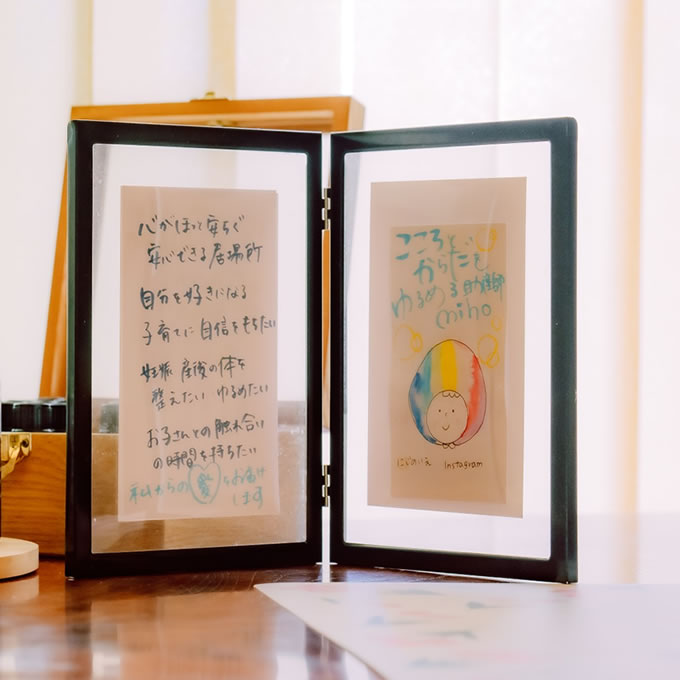 心がほっと安らぐ
安心できる居場所
自分を好きになる
子育てに自信をもちたい
妊娠 産後の体を
整えたい ゆるめたい
お子さんとの触れ合い
の時間を持ちたい
私からの愛をお届け
します
こころと
からだを
ゆるめる助産師
miho
Instagram